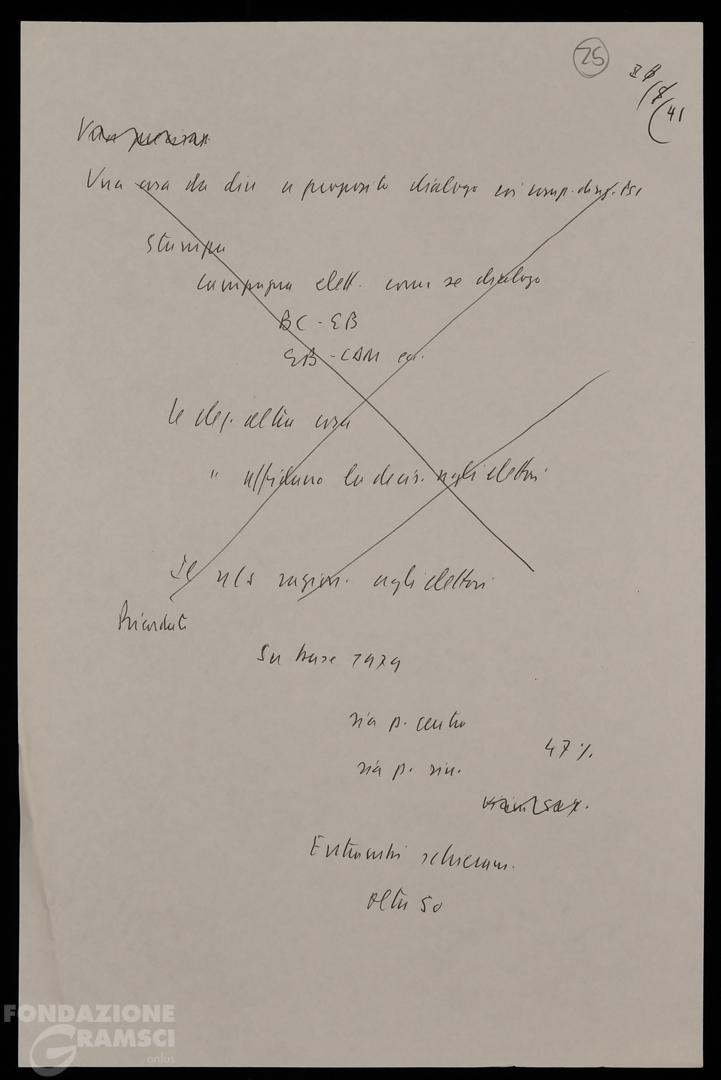 25
41
Una cosa da dire a proposito dialogo coi comp. 
Stampa
Campagna elett. come se dialogo
BC - EB
EB - CDM ecc.
le altra cosa
" affidano la decis. agli elettori
Se agli elettori
Ricordati
Su base 1979
sia p. centro
47 %
sia p. sin.
Entrambi schieram.
oltre 50
FONDAZIONE
GRAMSCI
onlus